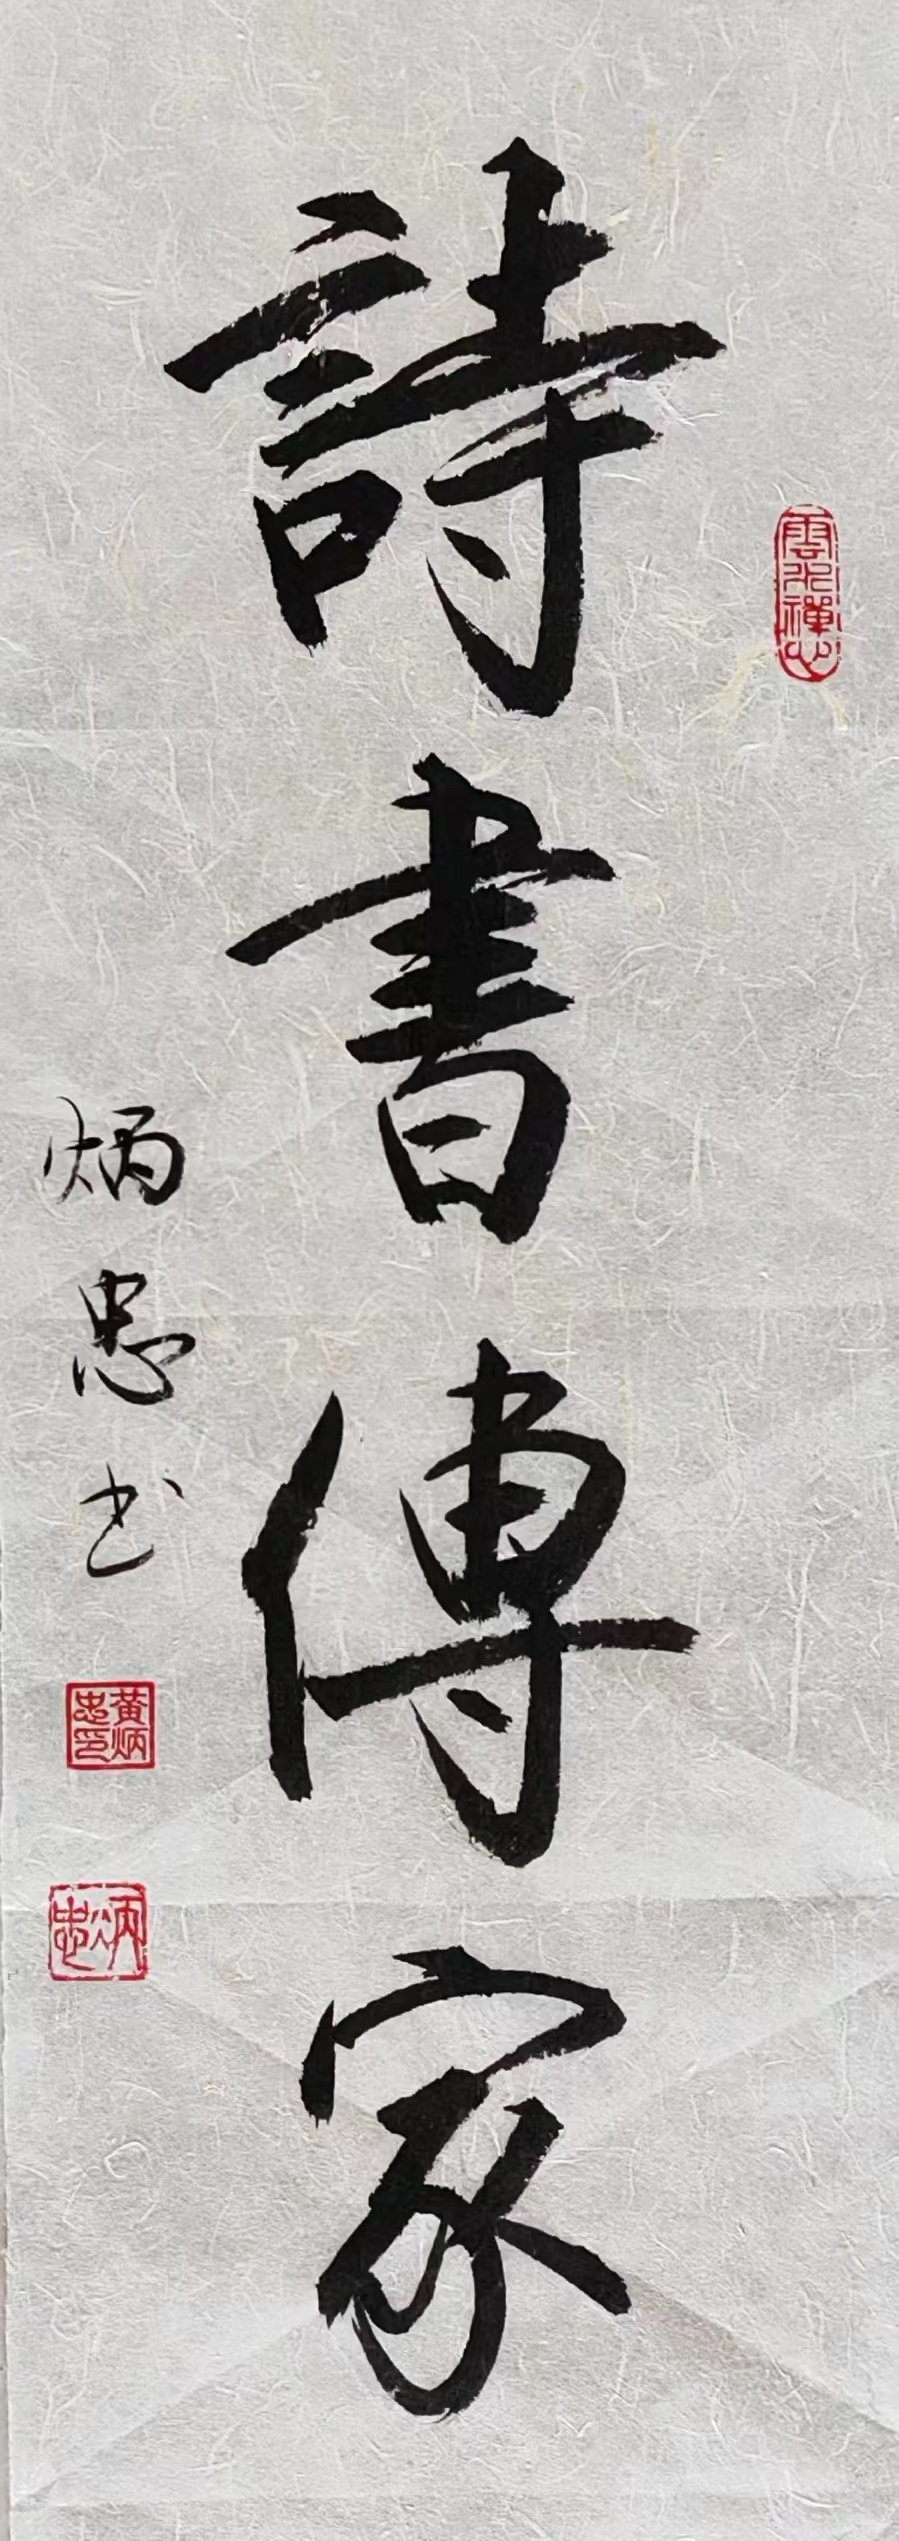 詩書傳家
炳忠书
雲水禪心
黃炳忠印
炳忠